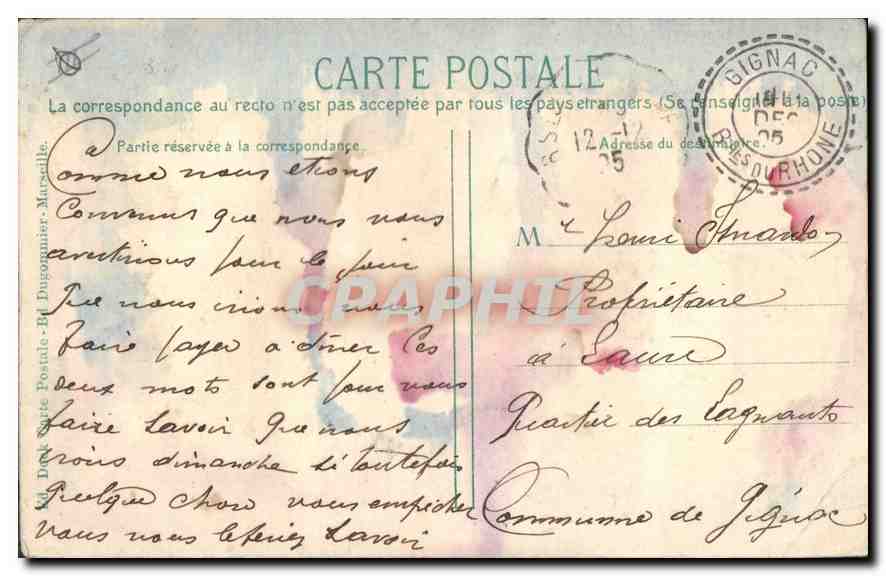 CARTE POSTALE
La correspondance au recto n'est pas acceptée par tous les pays etrangers (Se renseigner à la poste)
Partie réservée à la correspondance
Adresse du destinataire.
GIGNAC
DEC
05
Bches DU RHONE
12 -12
05
Comme nous etions
Convenus que nous vous
avertirions pour le jour
Que nous irions nous
faire payer a diner Ces
deux mots sont pour vous
faire Savoir Que nous
irons dimanche Si toutefois
Quelque chose vous empécher
vous nous leferiez Savoir
M Henri
Propriétaire
à Laure
Quartier des
Communne de Gignac
Ed. Dock Carte Postale - Bd Dugommier - Marseille.
CPAPHIL